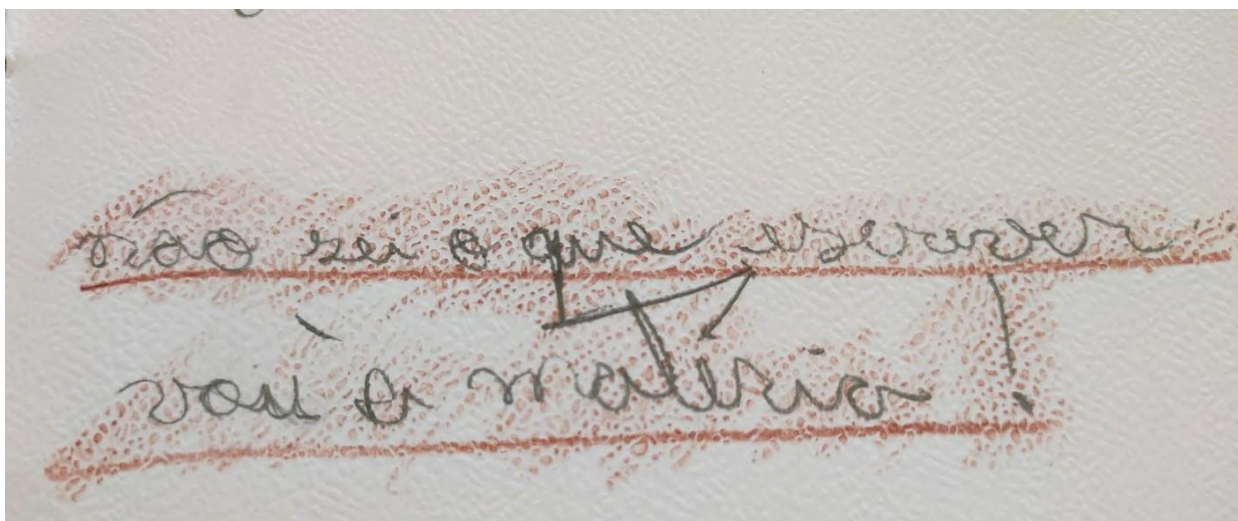 não sei o que escrever
vou à matéria!